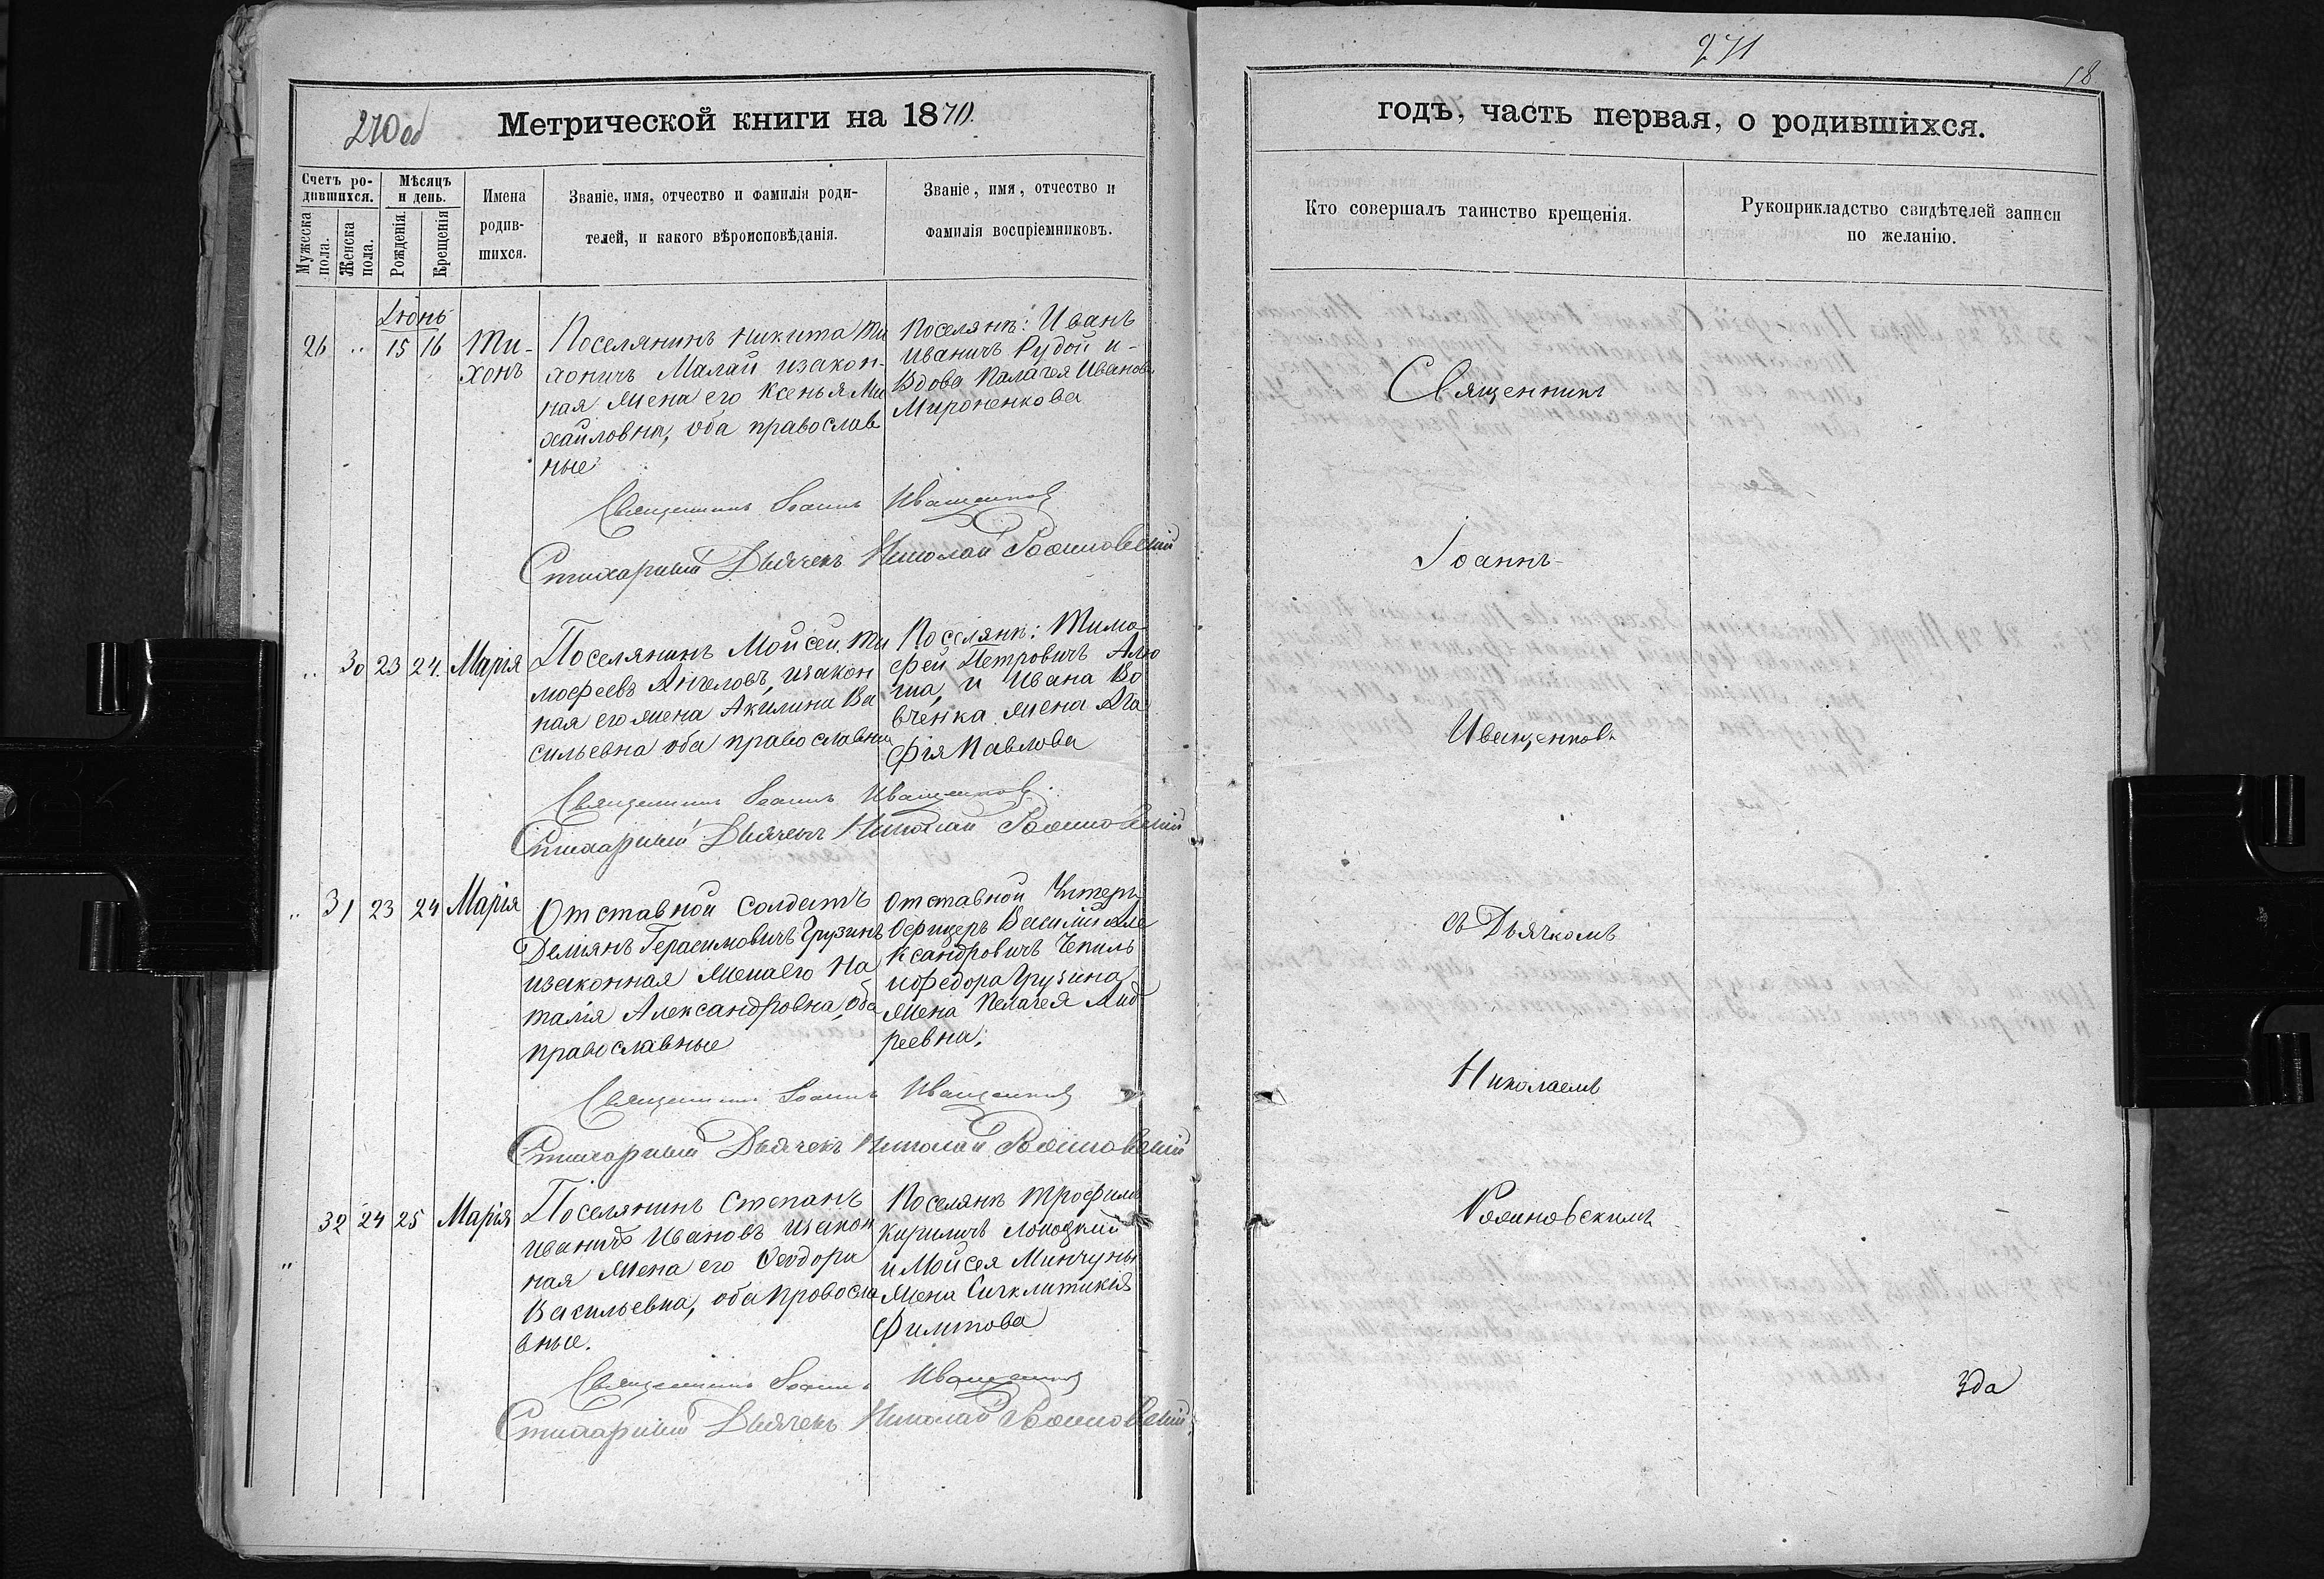 270 об
Метрической книги на 1870.
Счетъ ро-
дившихся.
Мѣсяцъ
и день.
Имена
родив-
шихся.
Званіе, имя, отчество и фамилія роди-
телей, и какого вѣроисповѣданія.
Званіе, имя, отчество и
фамилія воспріемниковъ.
Мужеска
пола.
Женска
пола.
Рожденія.
Крещенія
Іюнь
26 .. 15 16 Ти-
хонъ
Поселянинъ Никита Ти
хоничъ Малай изакон-
ная жена его Ксенья Ми
хайловна, оба православ
ные
Поселянѣ: Иванъ
Иваничъ Рудой и-
Вдова Палагея Иванов
Мироненкова
Священникъ Іоаннъ Иващенковъ
Стихарный Дьячекъ Николай
.. 30 23 24. Марія
Поселянинъ Мойсей Ти
мофеевъ Ангеловъ, изакон
ная его жена Акилина Ва
сильевна оба православны
Поселянѣ: Тимо
фей Петровичъ Алю
ша, и Ивана Во
вченка жена Ага
фія Павлова
Священникъ Іоаннъ Иващенковъ.
Стихарный Дьячекъ Николай
.. 31 23 24 Марія
Отставной солдатъ
Деміянъ Герасимовичъ Грузинъ
изаконная жена его На
талія Александровна, оба
православные
Отставной Унтеръ
Офицеръ Василій Але
ксандровичъ Чепиль
и Федора Грузина
жена Пелагея Анд
реевна;
Священникъ Іоаннъ Иващенковъ
Стихарный Дьячекъ Николай
" 32 24 25 Марія
Поселянинъ Степанъ
Иваничъ Ивановъ изакон
ная жена его Феодора
Васильевна, оба провосла
вные.
Поселянѣ Трофимъ
Кириличъ
и Мойсея Минчуны
жена Сиклитикія
Филипова
Священникъ Іоаннъ Иващенковъ
Стихарный Дьячекъ Николай
271
18
годъ, часть первая, о родившихся.
Кто совершалъ таинство крещенія.
Рукоприкладство свидѣтелей записи
по желанію.
Священникъ
Іоаннъ
Иващенковъ
съ Дьячкомъ
Николаемъ